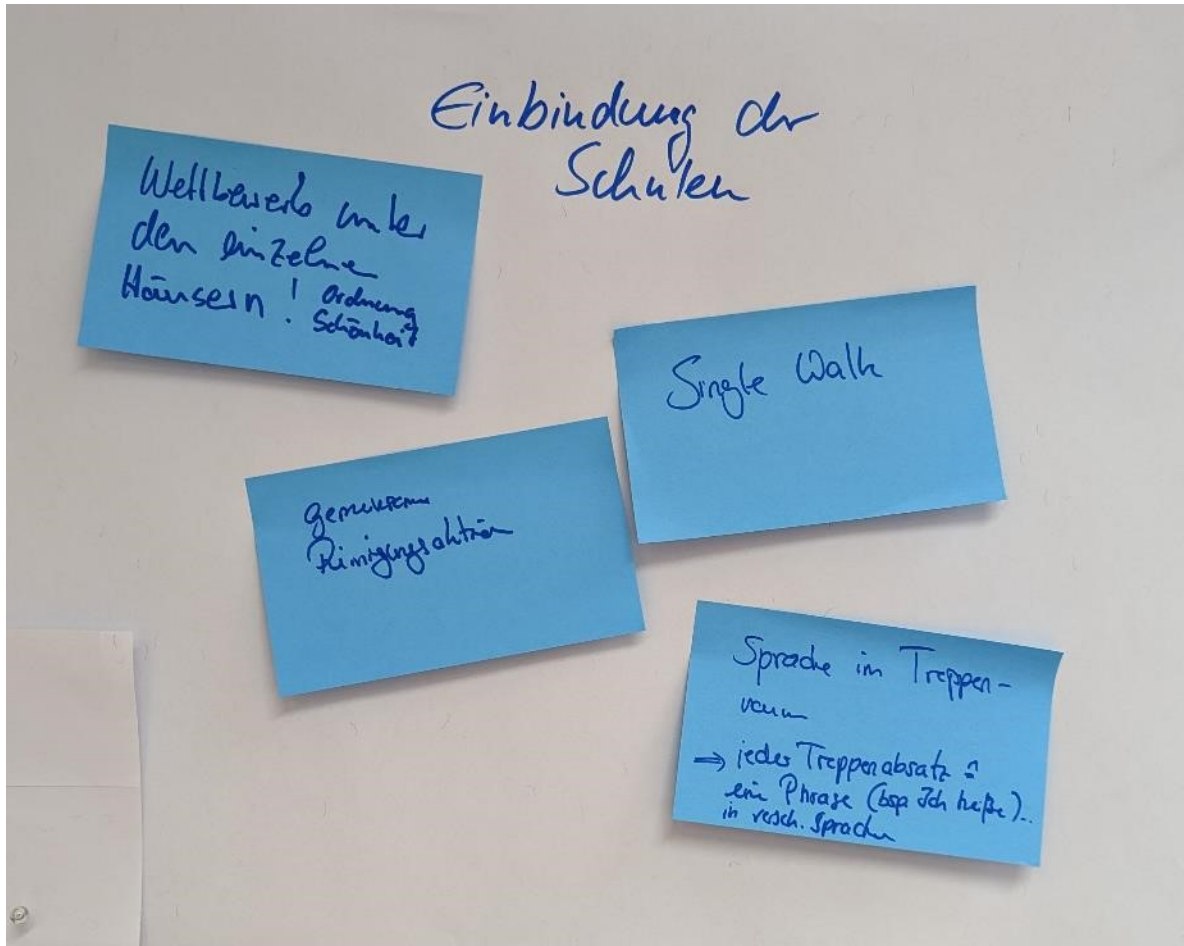 Einbindung der
Schulen
Wettbewerb unter
den einzelne
Häusern ! Ordnung
Schönheit
Single Walk
gemeinsame
Reinigungsaktion
Sprache im Treppen-
raum
⇒ jeder Treppenabsatz ≙
eine Phrase (bsp Ich heiße)...
in versch. Sprachen